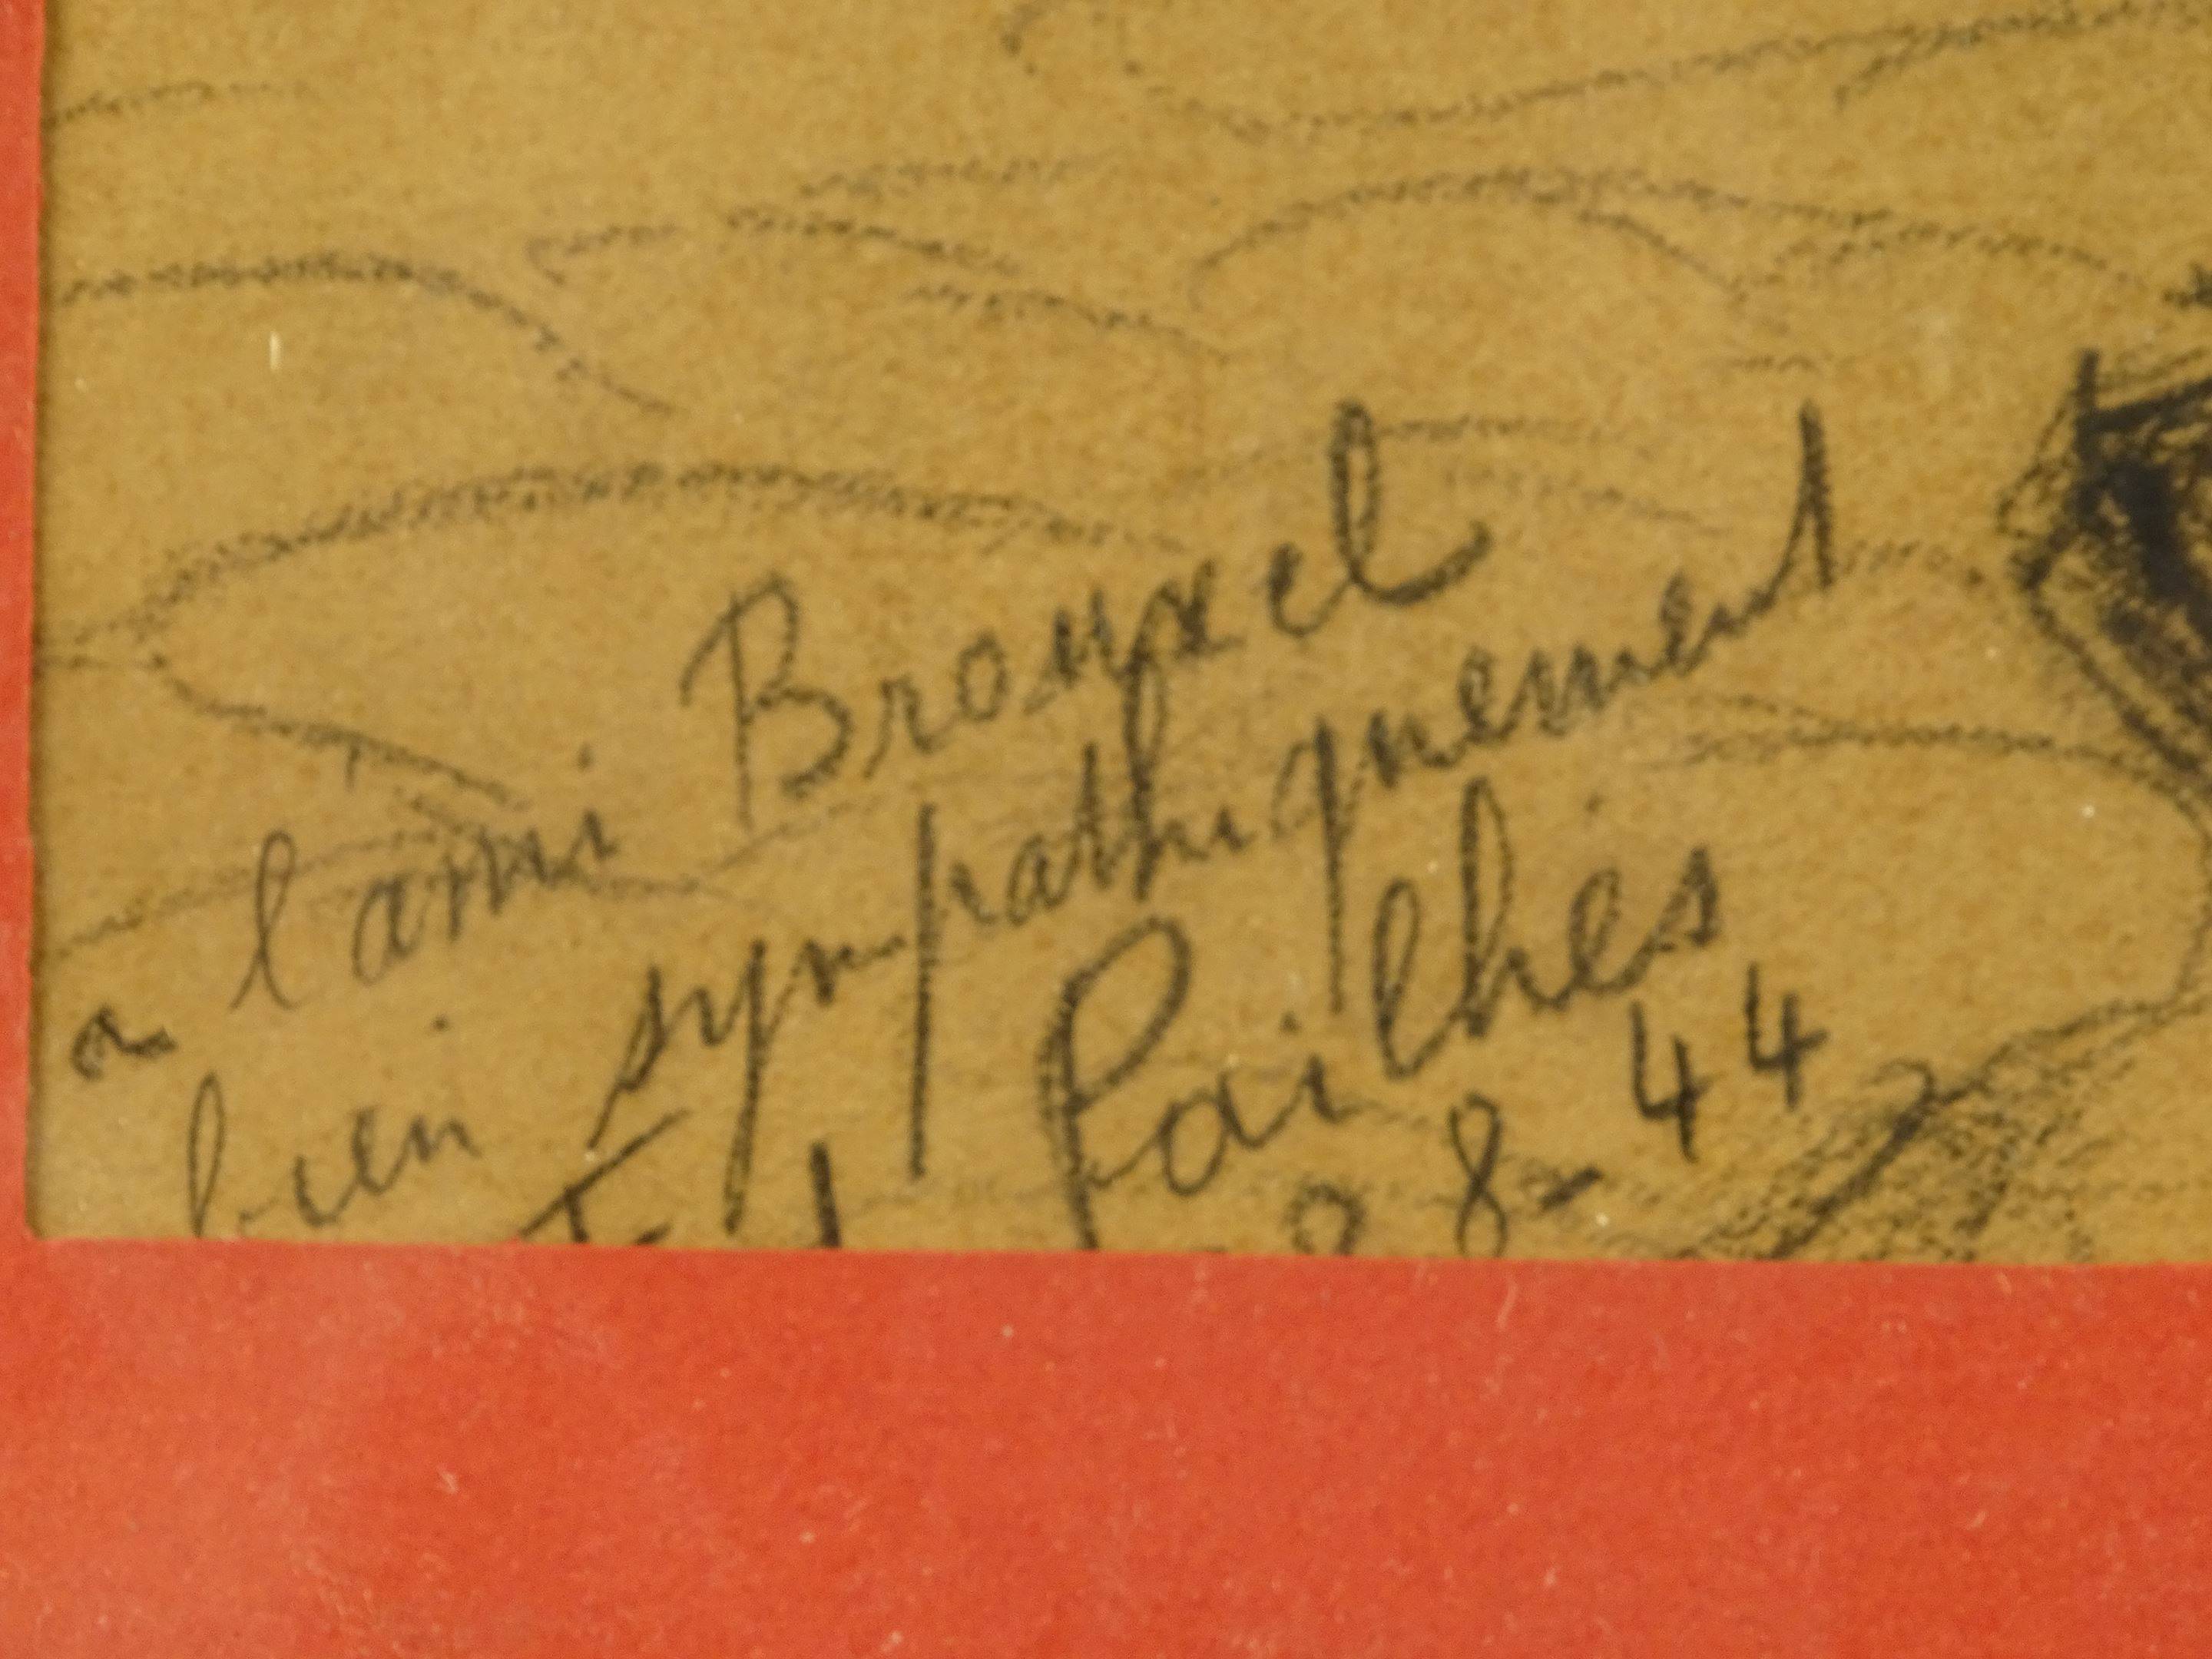 a l'ami Brouxel
bien sympathiquement
Pailhes
8-44